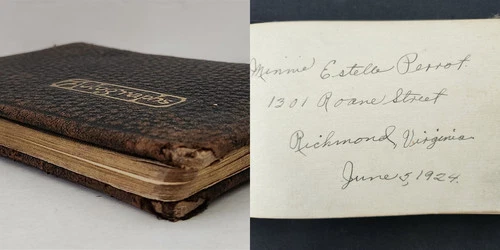 Autographs
Minnie Estelle Perrot
1301 Roane Street
Richmond, Virginia
June 3, 1924.